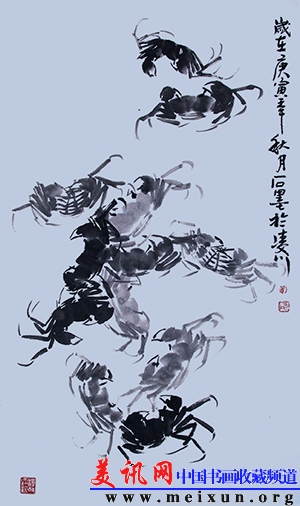 岁在庚寅年秋月石墨於凌川
美讯网 中国书画收藏频道
www.meixun.org